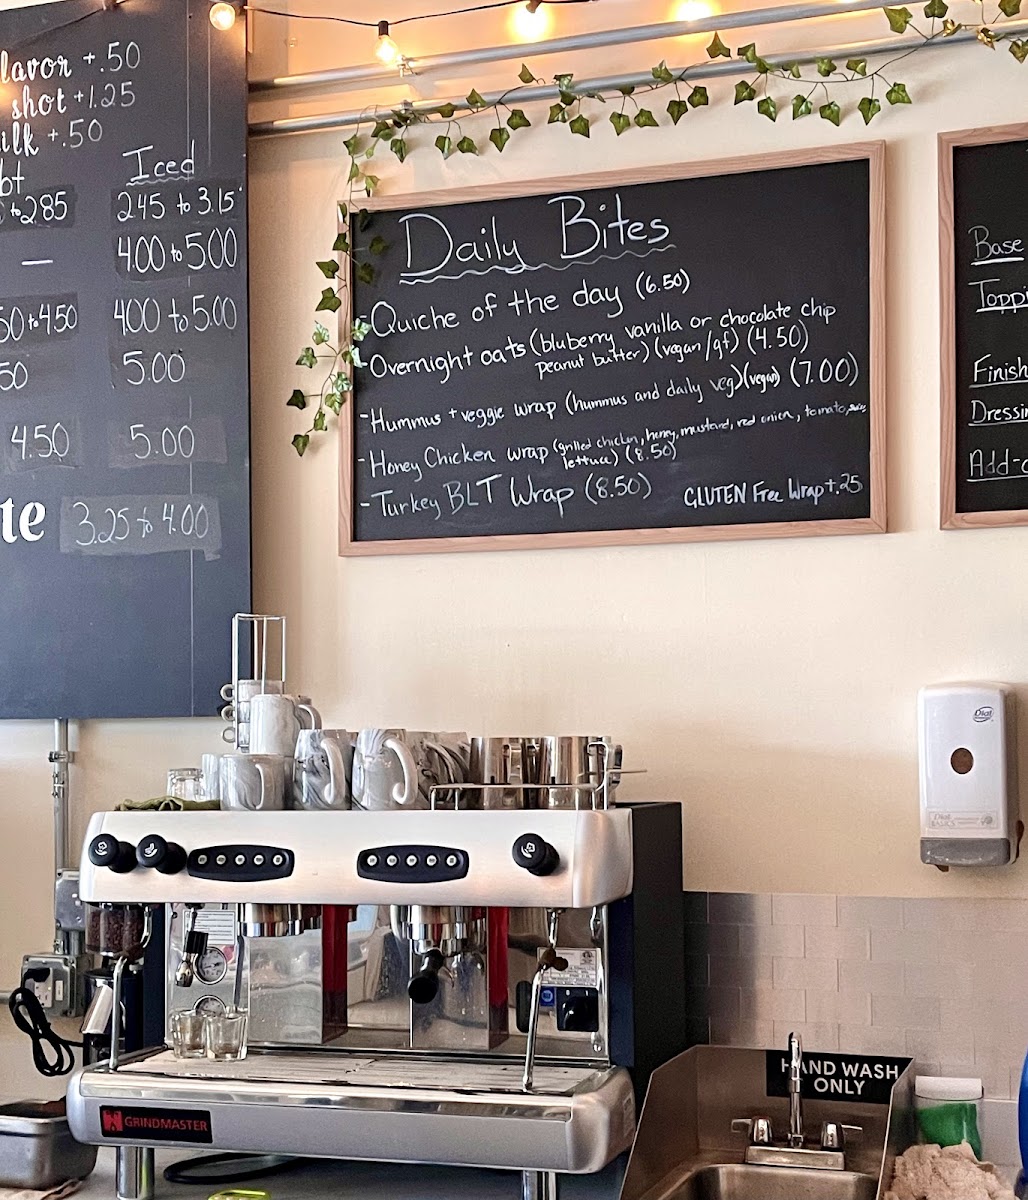 lavor +.50
shot +1.25
ilk +.50
ot Iced
to 2.85 2.45 to 3.15
— 4.00 to 5.00
50 to 4.50 4.00 to 5.00
50 5.00
4.50 5.00
te 3.25 to 4.00
Daily Bites
- Quiche of the day (6.50)
- Overnight oats (bluberry vanilla or chocolate chip
peanut butter) (vegan/gf) (4.50)
- Hummus + veggie wrap (hummus and daily veg) (vegan) (7.00)
- Honey Chicken wrap (grilled chicken, honey, mustard, red onion, tomato,
lettuce) (8.50)
- Turkey BLT Wrap (8.50)
GLUTEN Free Wrap +.25
Base
Toppi
Finish
Dressin
Add-o
Dial
Dial
BASICS
GRINDMASTER
HAND WASH
ONLY